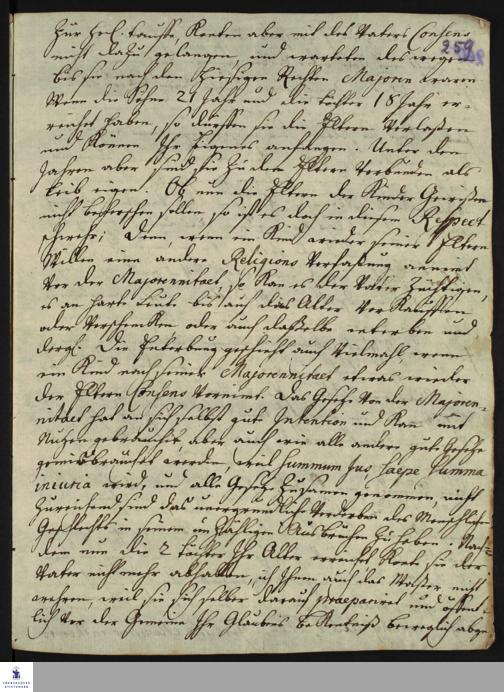 zur heil. Tauffe, konten aber mit des Vaters Consens
259
nicht dazu gelangen, und warteten deswegen
bis sie nach den hiesigen Rechten Majorenn waren
Wenn die Söhne 21 Jahr und die töchter 18 Jahr er-
reicht haben, so dürffen sie die Eltern verlaßen
und können Ihr Eigenes anfangen. Unter den
Jahren aber sind sie zu den Eltern verbunden als
leib eigen. Ob nun die Eltern der Kinder Gewissen
nicht beherschen sollen, so ist es doch in diesem Respect
schwehr; Denn, wenn ein Kind wieder seiner Eltern
Willen eine andere Religions Verfaßung annimt
vor der Majorennitaet, so kan es der Vater züchtigen,
es an harte leute bis auch das Alter verkauffen
oder verschencken oder auch daßelbe enterben und
dergl. Die Enterbung geschieht auch vielmahl wenn
ein Kind nach seiner Majorennitaet etwas wieder
der Eltern Consens vornimt. Das Gesetz von der Majoren-
nitaet hat an sich selbst gute Intention und kan mit
Nutzen gebraucht, aber auch wie alle andere gute Gesetze
gemißbrauchet werden, weil Summum Jus saepe Summa
iniuria wird, und alle Gesetze zusammen genommen, nicht
zureichend sind das unergründliche Verderben des Menschlichen
Geschlechts in seinen unzähligen Ausbrüchen zu heben. Nach-
dem nun die 2 töchter Ihr Alter erreichet konte sie der
Vater nicht mehr abhalten, ich Ihnen auch das Waßer nicht
wehren, weil sie sich selber darauf praepariret und öffent-
lich vor der Gemeine Ihr Glaubens Bekentniß beweglich abge-
FRANCKESCHE STIFTUNGEN